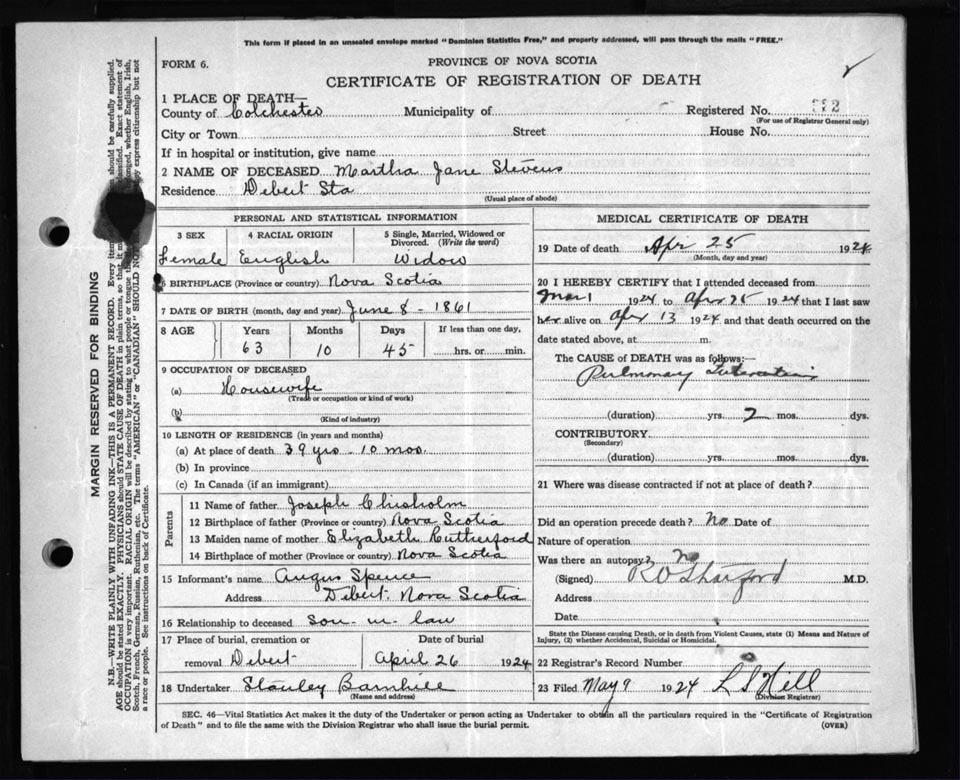 This form if placed in an unsealed envelope marked "Dominion Statistics Free," and properly addressed, will pass through the mails "FREE."
FORM 6.
PROVINCE OF NOVA SCOTIA
CERTIFICATE OF REGISTRATION OF DEATH
1 PLACE OF DEATH—
County of Colchester Municipality of Registered No.
(For use of Registrar General only)
City or Town Street House No.
If in hospital or institution, give name
2 NAME OF DECEASED Martha Jane Stevens
Residence Debert Sta
(Usual place of abode)
PERSONAL AND STATISTICAL INFORMATION
3 SEX 4 RACIAL ORIGIN 5 Single, Married, Widowed or Divorced. (Write the word)
Female English Widow
6 BIRTHPLACE (Province or country) Nova Scotia
7 DATE OF BIRTH (month, day and year) June 8 - 1861
8 AGE Years Months Days If less than one day,
63 10 45 hrs. or min.
9 OCCUPATION OF DECEASED
(a) Housewife
(Trade or occupation or kind of work)
(b)
(Kind of industry)
10 LENGTH OF RESIDENCE (in years and months)
(a) At place of death 39 yrs - 10 mos.
(b) In province
(c) In Canada (if an immigrant)
Parents
11 Name of father Joseph Chisholm
12 Birthplace of father (Province or country) Nova Scotia
13 Maiden name of mother Elizabeth Rutherford
14 Birthplace of mother (Province or country) Nova Scotia
15 Informant's name Angus Spence
Address Debert. Nova Scotia
16 Relationship to deceased son-in-law
17 Place of burial, cremation or removal Debert Date of burial April 26 1924
18 Undertaker Stanley Barnhill
(Name and address)
MEDICAL CERTIFICATE OF DEATH
19 Date of death Apr 25 1924
(Month, day and year)
20 I HEREBY CERTIFY that I attended deceased from
Mar 1 1924 to Apr 25 1924 that I last saw
her alive on Apr 13 1924 and that death occurred on the
date stated above, at m.
The CAUSE OF DEATH was as follows:—
Pulmonary
(duration) yrs. 2 mos. dys.
CONTRIBUTORY
(Secondary)
(duration) yrs. mos. dys.
21 Where was disease contracted if not at place of death?
Did an operation precede death? No Date of
Nature of operation
Was there an autopsy? No
(Signed) M.D.
Address
Date
State the Disease causing Death, or in death from Violent Causes, state (1) Means and Nature of
Injury, (2) whether Accidental, Suicidal or Homicidal.
22 Registrar's Record Number
23 Filed May 9 1924 L S Hill
(Division Registrar)
SEC. 46—Vital Statistics Act makes it the duty of the Undertaker or person acting as Undertaker to obtain all the particulars required in the "Certificate of Registration
of Death" and to file the same with the Division Registrar who shall issue the burial permit. (OVER)
MARGIN RESERVED FOR BINDING
N.B.—WRITE PLAINLY WITH UNFADING INK—THIS IS A PERMANENT RECORD. Every item should be carefully supplied.
AGE should be stated EXACTLY. PHYSICIANS should STATE CAUSE OF DEATH in plain terms, so that it classified. Exact statement of
OCCUPATION is very important. RACIAL ORIGIN will be described by stating to what people or tongue whether English, Irish,
Scotch, French, German, Russian, Ruthenian, etc. The terms "AMERICAN" or "CANADIAN" SHOULD NOT express citizenship but not
a race or people. See instructions on back of Certificate.